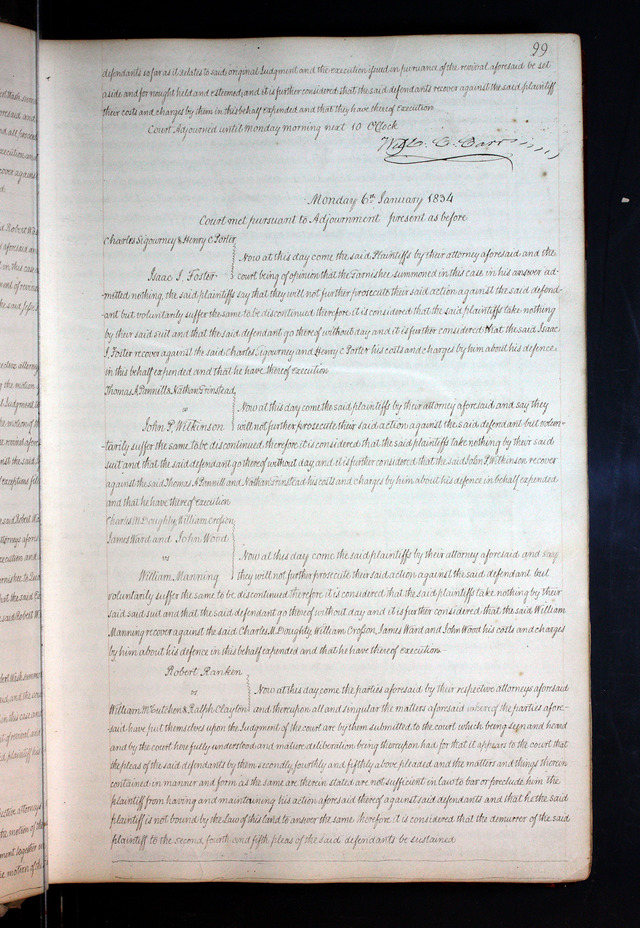 99
defendants so far as it relates to said original Judgment and the execution issued in pursuance of the revival aforesaid be set
aside and for nought held and esteemed and it is further considered that the said defendants recover against the said plaintiff
their costs and charges by them in this behalf expended and that they have thereof execution
Court Adjourned until Monday morning next 10 O'Clock
Wm. C. Carr
Monday 6th January 1834
Court met pursuant to Adjournment present as before
Charles Sigourney & Henry C Porter
Now at this day come the said Plaintiffs by their attorney aforesaid and the
Isaac I. Foster court being of opinion that the Garnishee summoned in this case in his answer ad-
-mitted nothing, the said plaintiffs say that they will not further prosecute their said action against the said defend-
ant but voluntarily suffer the same to be discontinued therefore it is considered that the said plaintiffs take nothing
by their said suit and that the said defendant go thereof without day and it is further considered that the said Isaac
I. Foster recover against the said Charles Sigourney and Henry C Porter his costs and charges by him about his defence
in this behalf expended and that he have thereof execution
Thomas A Pannill & Nathan Grinstead
vs Now at this day come the said plaintiffs by their attorney aforesaid and say they
John P. Wilkinson will not further prosecute their said action against the said defendant but volun-
-tarily suffer the same to be discontinued therefore it is considered that the said plaintiffs take nothing by their said
suit and that the said defendant go thereof without day and it is further considered that the said John P. Wilkinson recover
against the said Thomas A Pannill and Nathan Grinstead his costs and charges by him about his defence in behalf expended
and that he have thereof execution
Charles M. Doughty, William Crofson,
James Ward and John Wood
vs Now at this day come the said plaintiffs by their attorney aforesaid and say
William Manning they will not further prosecute their said action against the said defendant but
voluntarily suffer the same to be discontinued therefore it is considered that the said plaintiffs take nothing by their
said said suit and that the said defendant go thereof without day and it is further considered that the said William
Manning recover against the said Charles M. Doughty, William Crofson, James Ward and John Wood his costs and charges
by him about his defence in this behalf expended and that he have thereof execution
Robert Ranken
vs Now at this day come the parties aforesaid by their respective attorneys aforesaid
William McCutchen & Ralph Clayton and thereupon all and singular the matters aforesaid where of the parties afore-
said have put themselves upon the Judgment of the court are by them submitted to the court which being seen and heard
and by the court here fully understood and mature deliberation being thereupon had for that it appears to the court that
the pleas of the said defendants by them secondly fourthly and fifthly above pleaded and the matters and things therein
contained in manner and form as the same are therein stated are not sufficient in law to bar or preclude him the
plaintiff from having and maintaining his action aforesaid thereof against said defendants and that he the said
plaintiff is not bound by the Law of this land to answer the same therefore it is considered that the demurrer of the said
plaintiff to the second fourth and fifth pleas of the said defendants be sustained